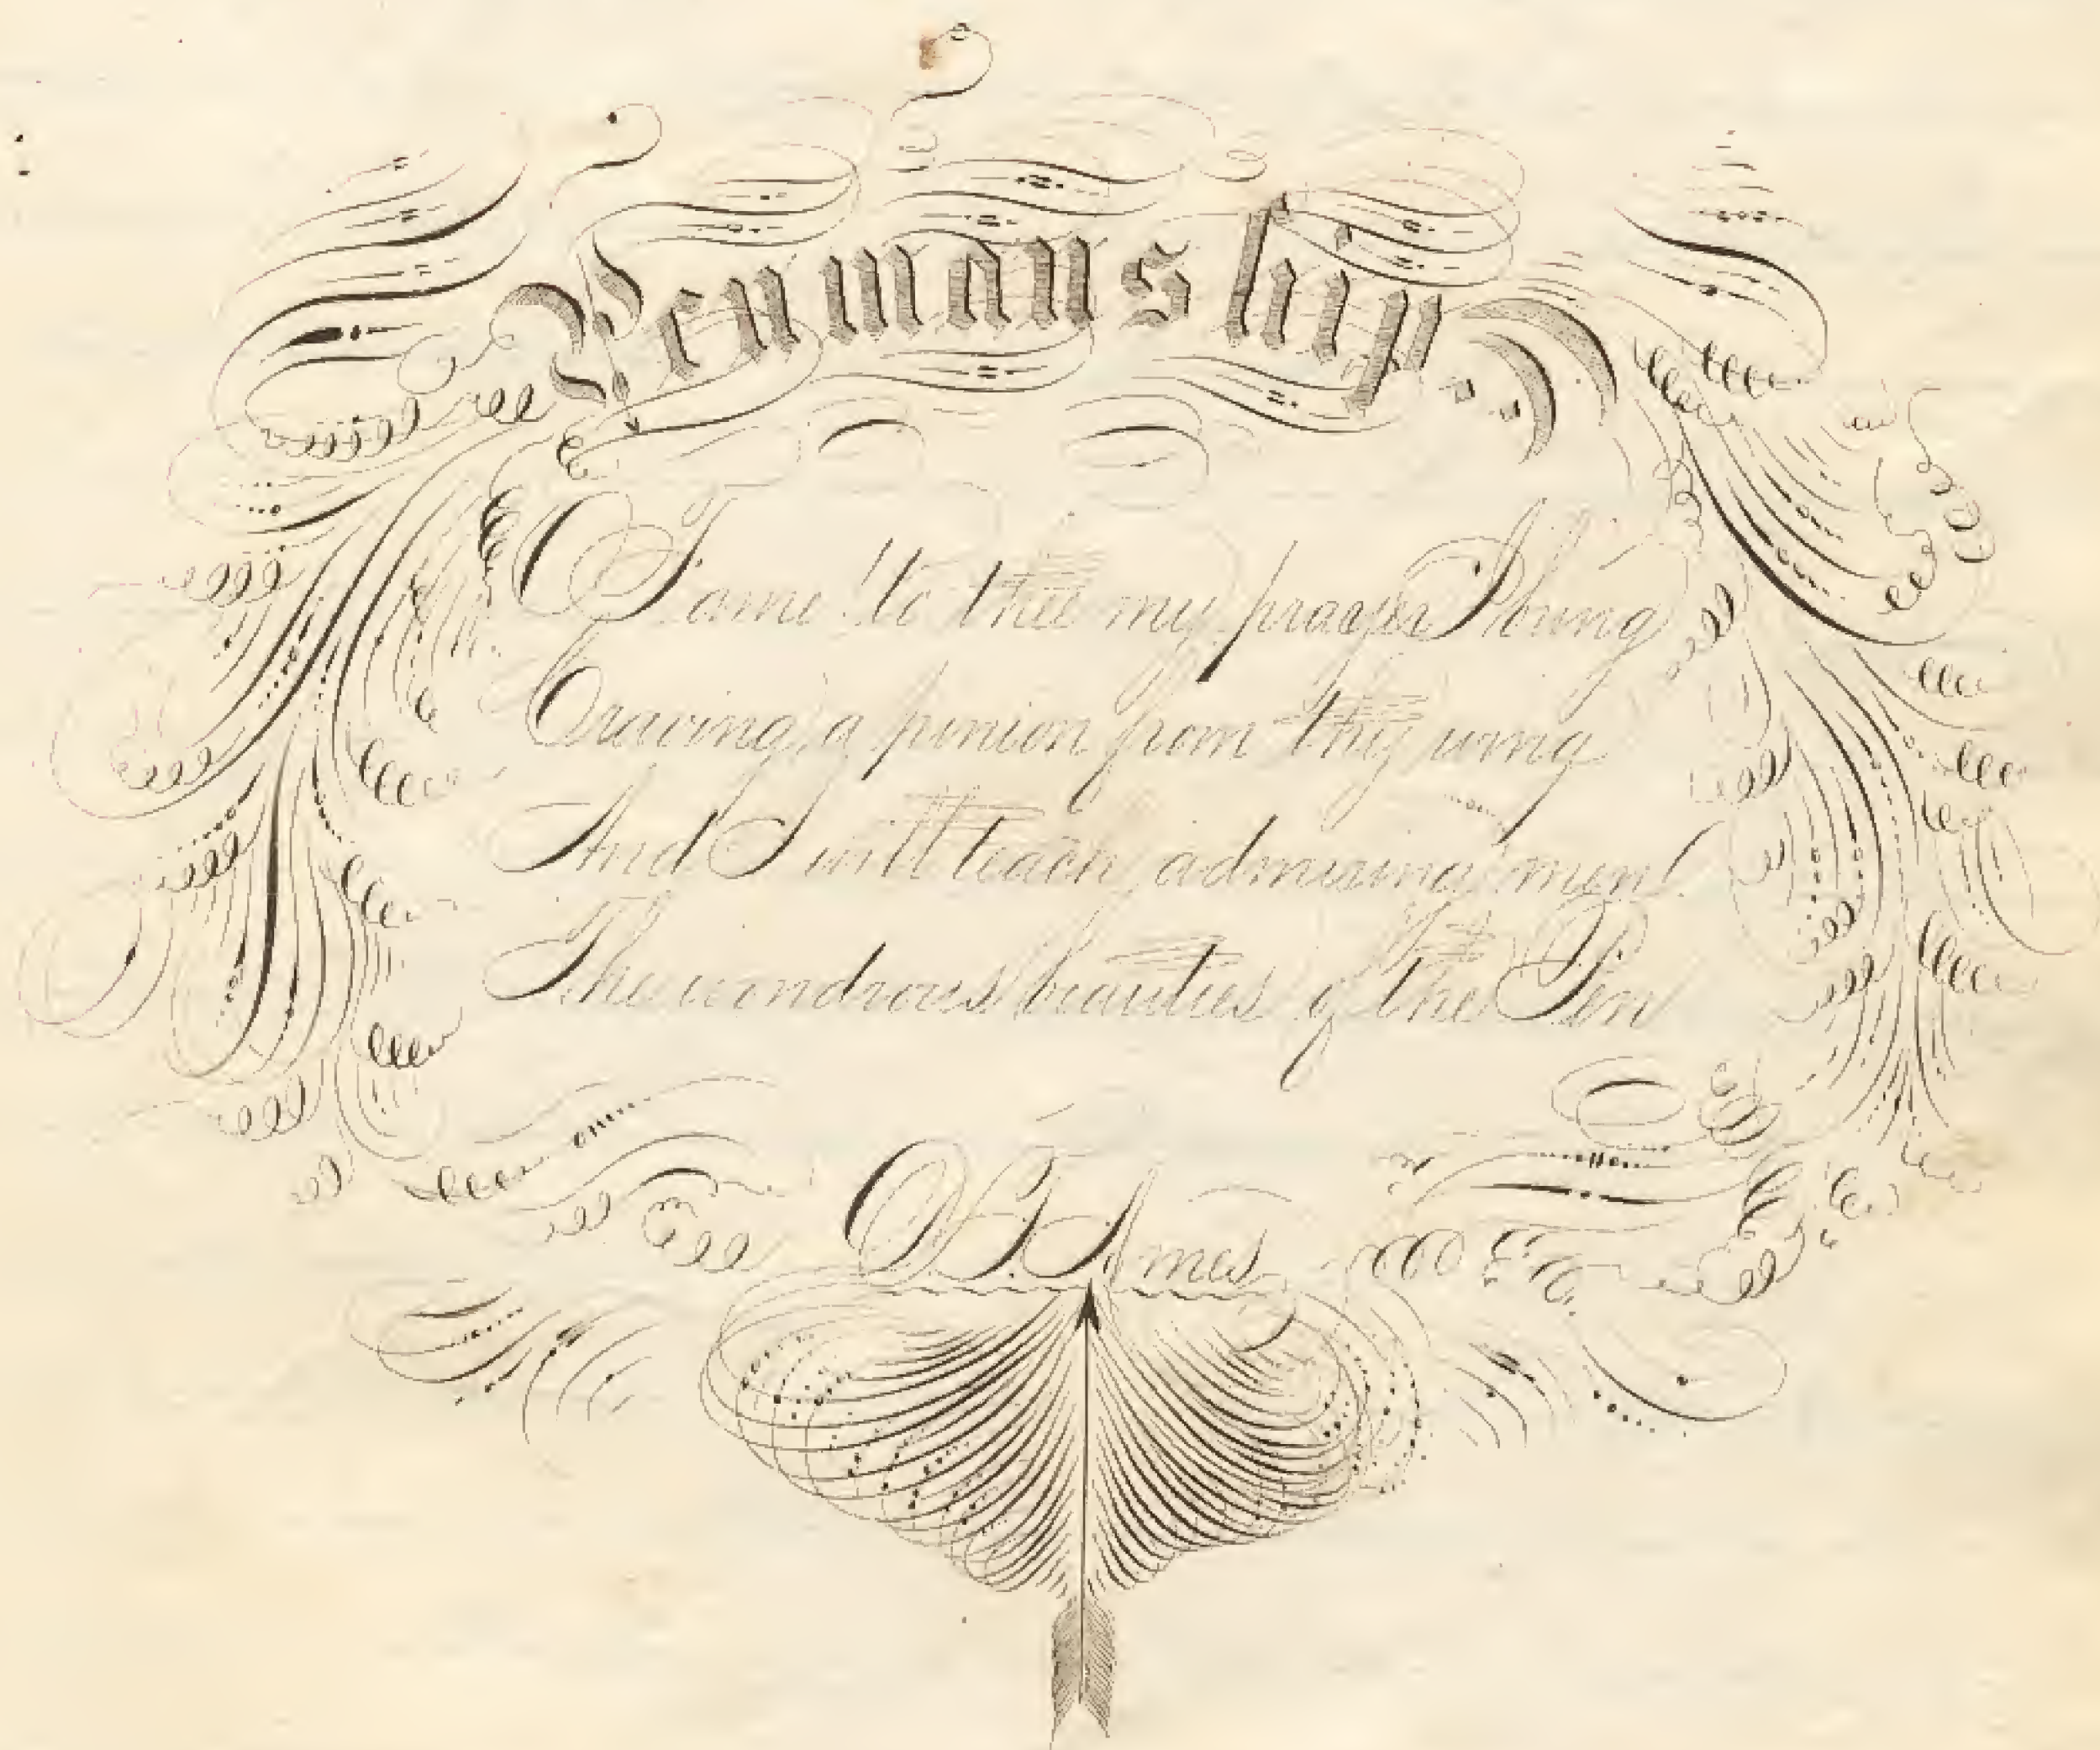 Penmanship.
Fame! to thee my prayer I bring
Craving a pinion from thy wing
And I will teach admiring men
The wondrous beauties of the Pen
D.T. Ames